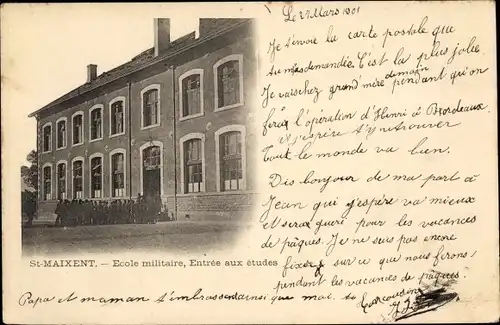 Le 27 Mars 1901
Je t'envoie la carte postale que
tu m'as demandée. C'est la plus jolie
Je vais chez grand'mère demain pendant qu'on
fera l'opération d'Henri à Bordeaux
j'espère t'y retrouver
Tout le monde va bien.
Dis bonjour de ma part à
Jean qui j'espère va mieux
et sera guéri pour les vacances
de pâques. Je ne suis pas encore
fixée sur ce que nous ferons
pendant les vacances de pâques.
St-MAIXENT. — Ecole militaire, Entrée aux études
Papa et maman t'embrassent ainsi que moi. ta
cousine